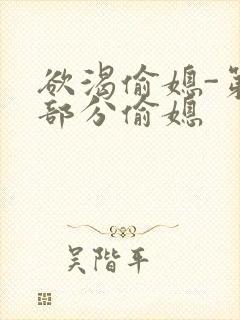 欲渴偷媳-第
部分偷媳
吴阶平